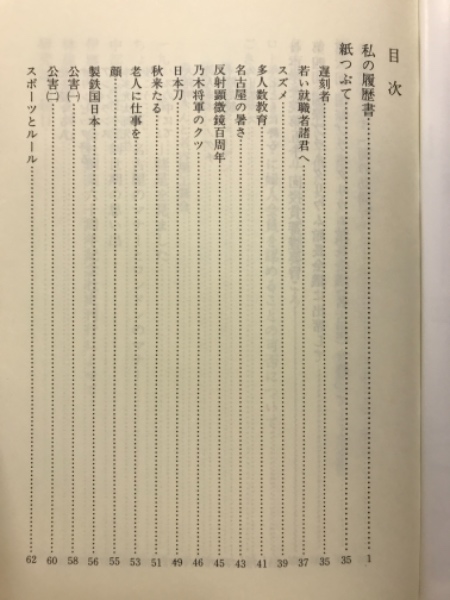 目次
私の履歴書……1
紙つぶて……35
遅刻者……35
若い就職者諸君へ……37
スズメ……39
多人数教育……41
名古屋の暑さ……43
反射顕微鏡百周年……45
乃木将軍のクツ……46
日本刀……49
秋来たる……51
老人に仕事を……53
顔……55
製鉄国日本……56
公害㈠……58
公害㈡……60
スポーツとルール……62